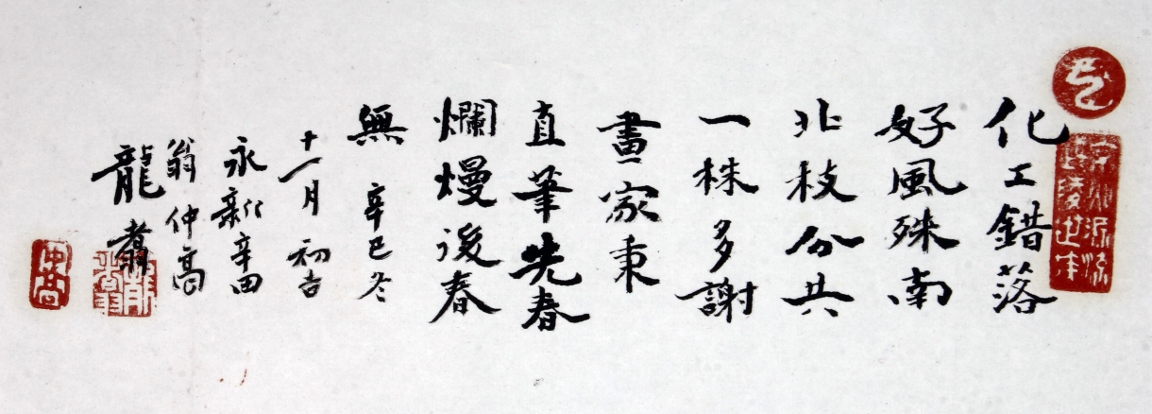 化工錯落
好風殊南
北枝分共
一株多謝
畫家秉
直筆先春
爛熳後春
無 辛巳冬
十一月初吉
永新辛田
翁仲高
龍翥
仲高